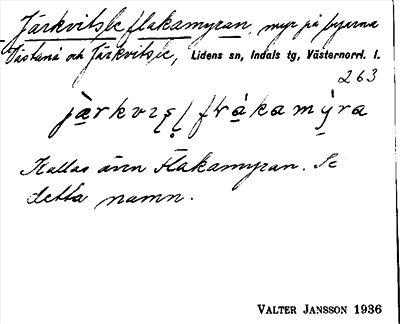 Järkvitsle flakamyran, myr på byarna
Västanå och Järkvitsle, Lidens sn, Indals tg, Västernorrl. l.
263
Kallas även Flakamyran. Se
detta namn.
VALTER JANSSON 1936